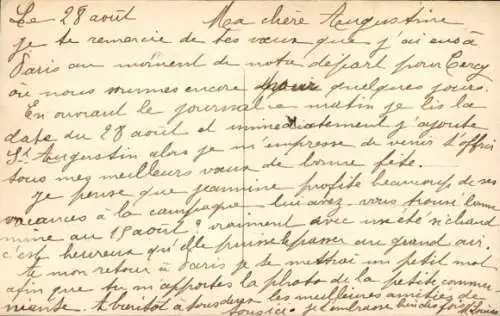 Le 28 août Ma chère Augustine
je te remercie de tes vœux que j'ai eus à
Paris au moment de notre départ pour Cercy
où nous sommes encore pour quelques jours.
En ouvrant le journal ce matin je lis la
date du 28 août et immédiatement j'ajoute
St Augustin alors je m'empresse de venir t'offrir
tous mes meilleurs vœux de bonne fête.
Je pense que jeannine profite beaucoup de ses
vacances à la campagne lui avez-vous trouvé bonne
mine au 15 août? vraiment avec un été si chaud
c'est heureux qu'elle puisse le passer au grand air.
A mon retour à Paris je te mettrai un petit mot
afin que tu m'apportes la photo de la petite commu-
niante. A bientôt à tous deux les meilleures amitiés de
je t'embrasse bien des fois